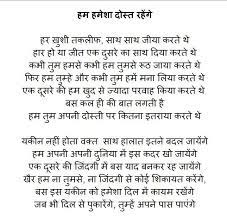 हम हमेशा दोस्त रहेंगे
हर खुशी तकलीफ, साथ साथ जीया करते थे
हार हो या जीत एक दुसरे का साथ दिया करते थे
कभी तुम हमसे कभी हम तुमसे रूठ जाया करते थे
फिर हम तुम्हे और कभी तुम हमें मना लिया करते थे
एक दुसरे की हम खुद से ज्यादा परवाह किया करते थे
बस कल ही की बात लगती है
हम तुम अपनी दोस्ती पर कितना इतराया करते थे
यकीन नहीं होता वक्त साथ हालात इतने बदल जायेंगे
हम अपनी अपनी दुनिया में इस कदर खो जायेंगे
एक दुसरे की जिंदगी में बस याद बनकर रह जायेंगे
खैर हम ना तुमसे, ना जिंदगी से कोई शिकायत करेंगे,
बस इस यकीन को हमेशा दिल में कायम रखेंगे
जब भी दिल से पुकारेंगे, तुम्हें अपने पास पाएंगे